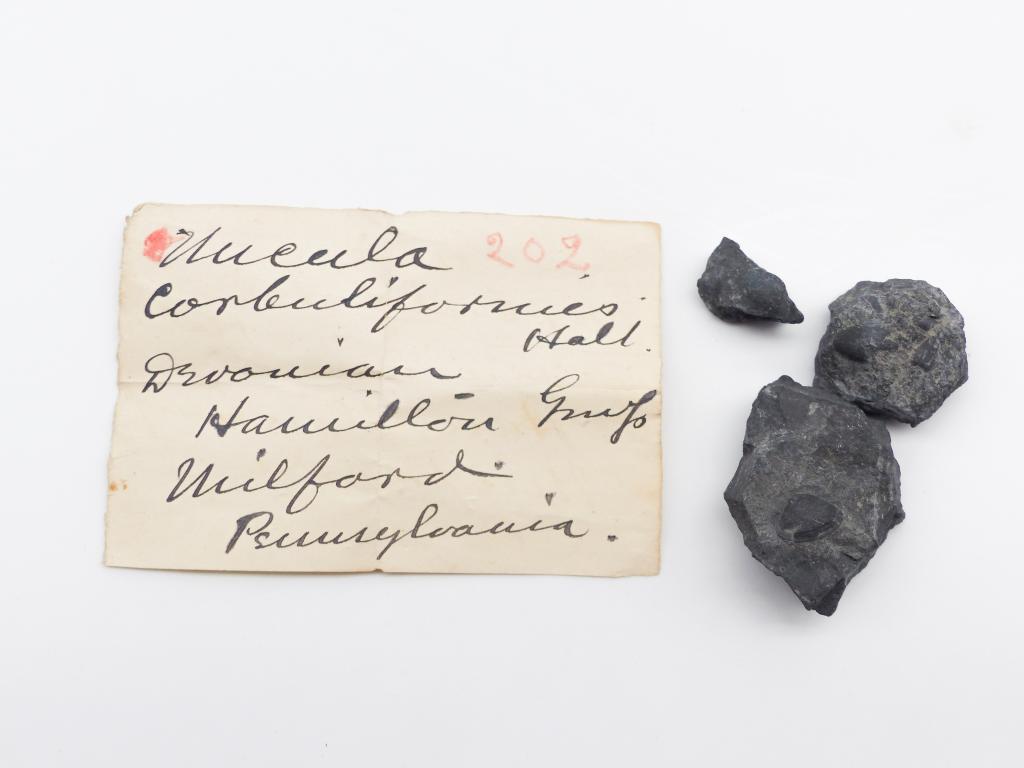 Nucula 202
corbuliformis
Hall.
Devonian
Hamilton Group
Milford.
Pennsylvania.